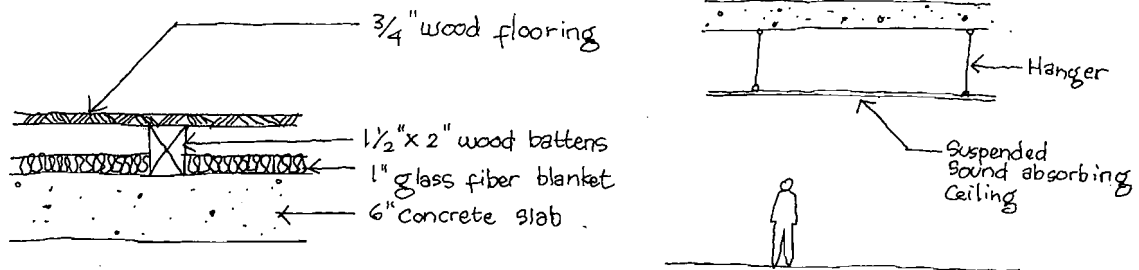 3/4" wood flooring
1 1/2" x 2" wood battens
1" glass fiber blanket
6" concrete slab
Hanger
Suspended
Sound absorbing
Ceiling